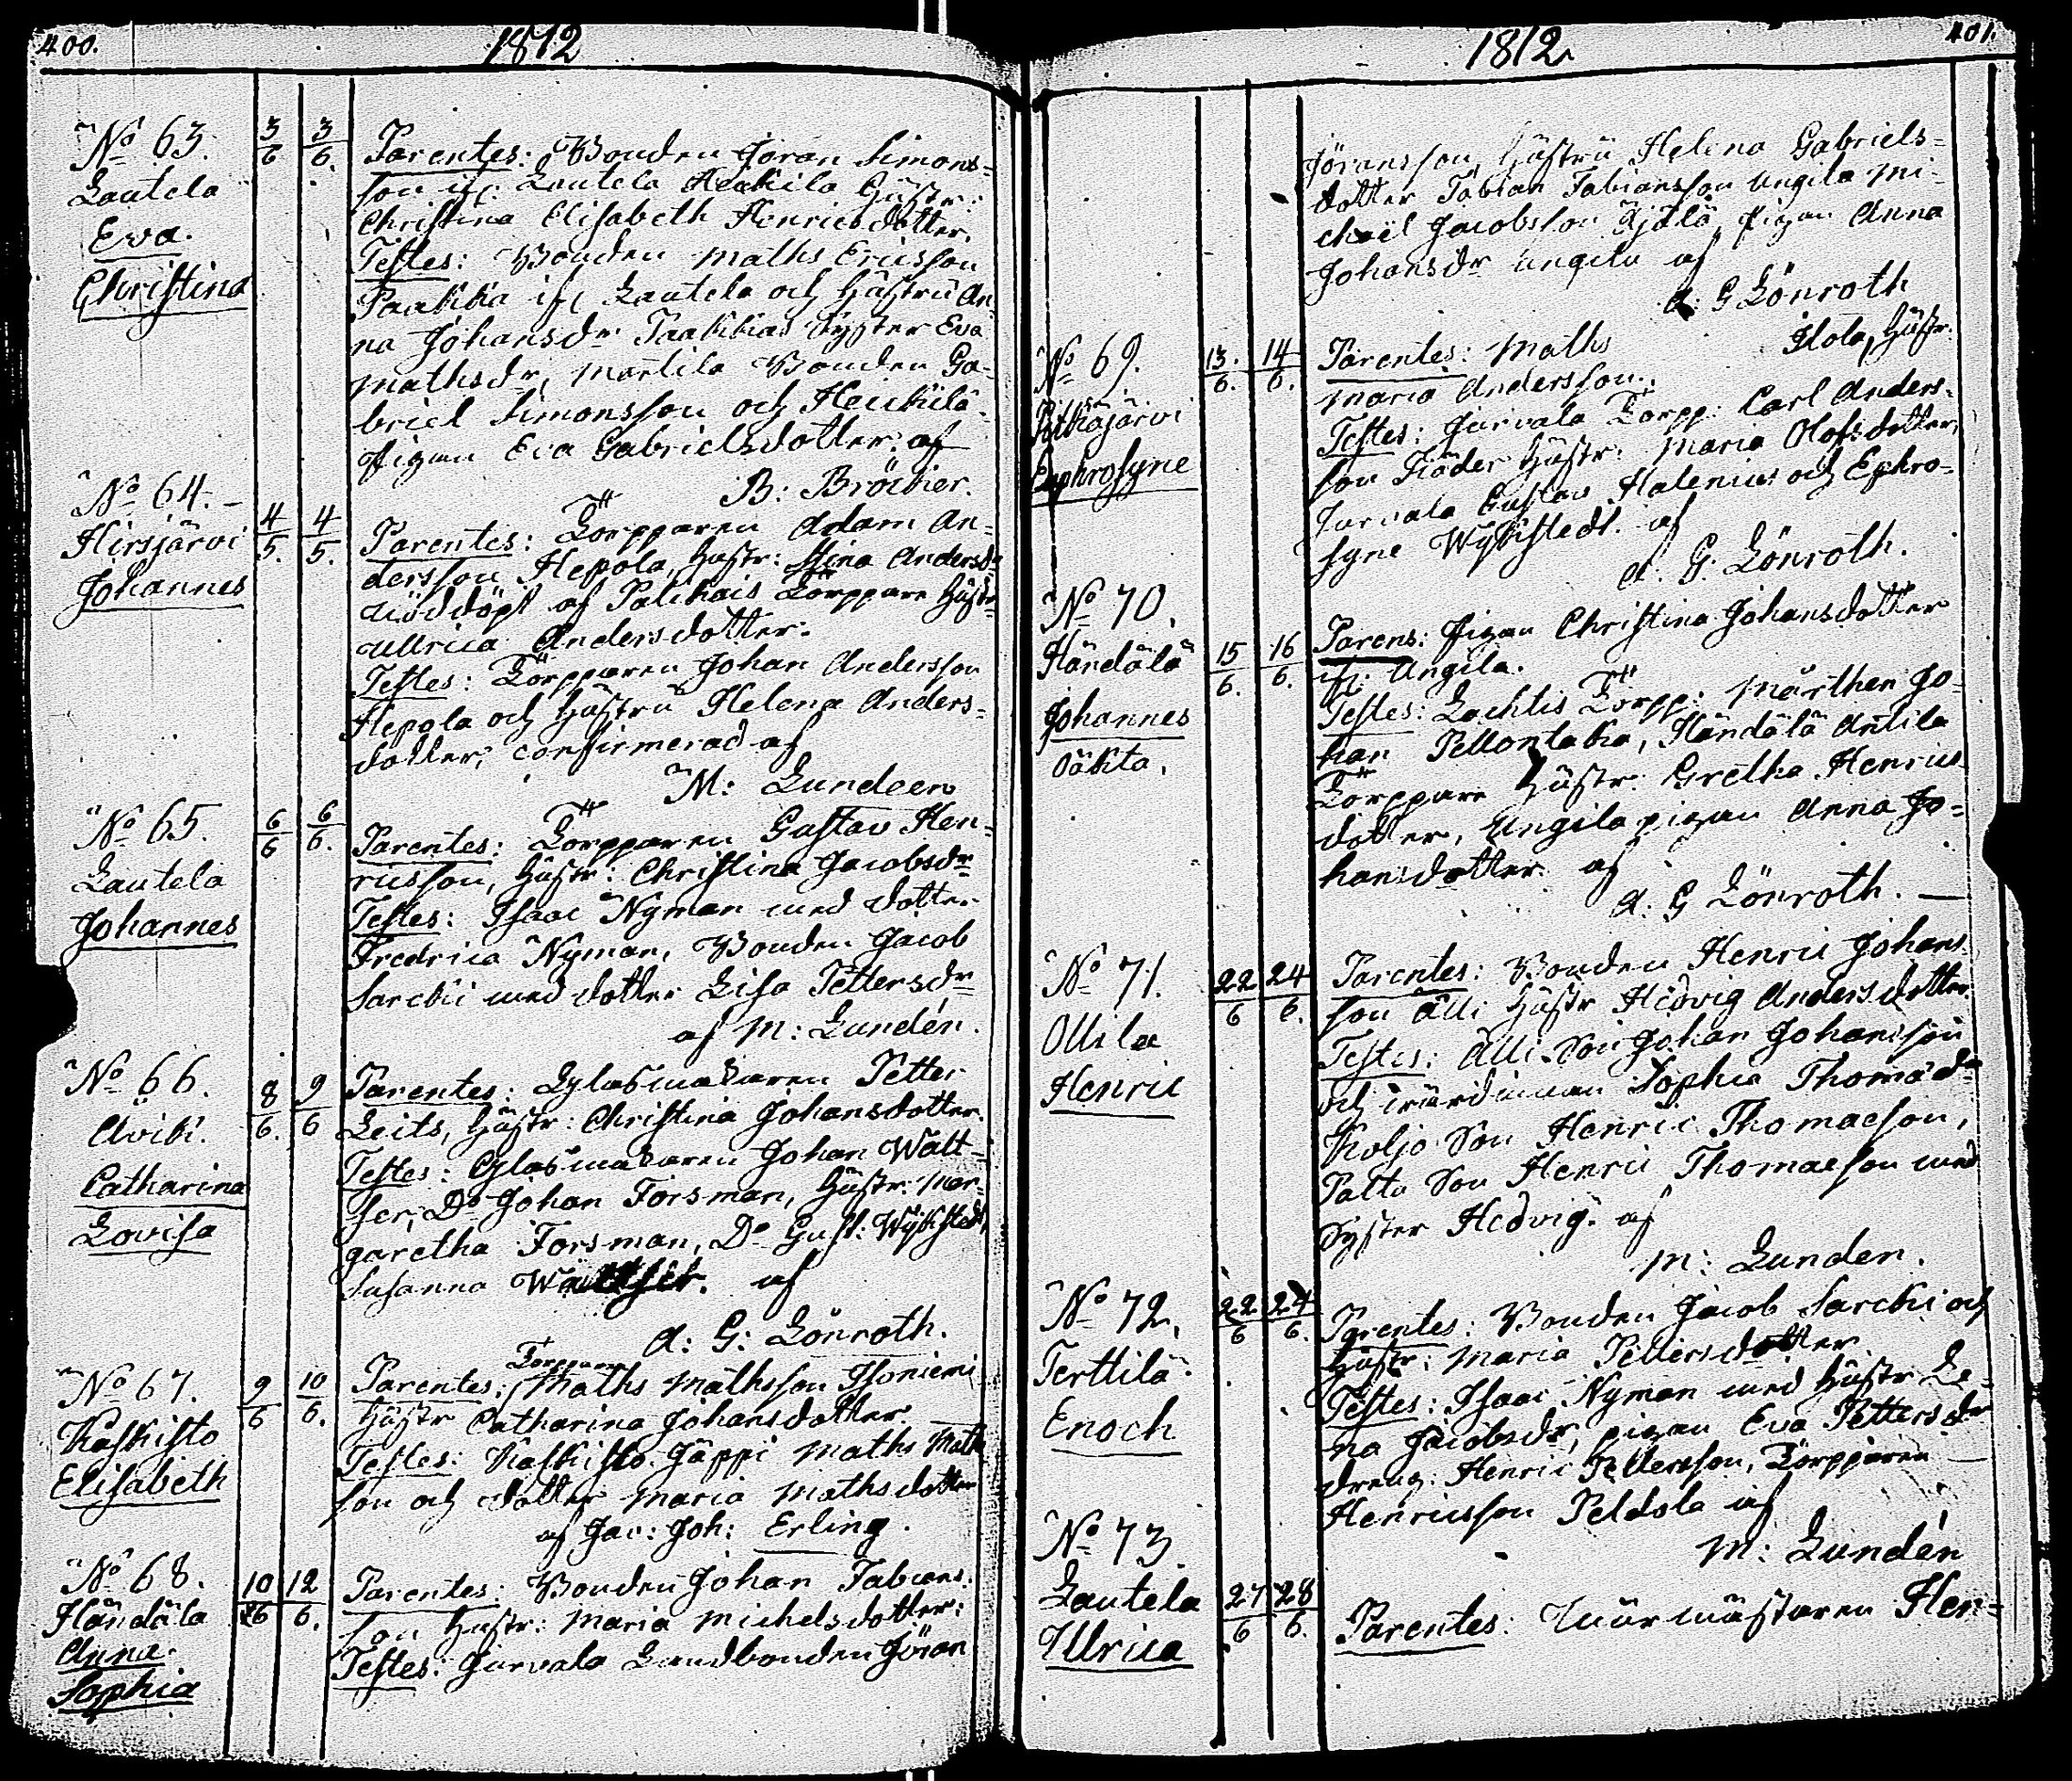 400.
1812
No 63.
Lautela
Eva.
Christina
3/6
3/6.
Parentes: Bonden Jöran Simons=
son if: Lautela Heikilä Hustr:
Christina Elisabeth Henricsdotter.
Testes: Bonden Maths Ericsson
Paakka if: Lautela och Hustru An=
na Johansdr Paakkas Syster Eva
Mathsdr, Mart­tila Bonden Ga=
briel Simonsson och Heikilä
Pigan Eva Gabrielsdotter: af
B: Bröcker.
No 64.
Hirsjärvi
Johannes
4/5.
4/5.
Parentes: Torpparen Adam An=
dersson Hepola, Hustr: Stina Andersdr
nöddöpt af Palikais Torppare Hustr
Ullrica Andersdotter.
Testes: Torpparen Johan Andersson
Hepola och Hustru Helena Anders=
dotter, confirmerad af
M: Lundeen
No 65.
Lautela
Johannes
6/6
6/6.
Parentes: Torpparen Gustav Hen=
ricsson, Hustr: Christina Jacobsdr
Testes: Isaac Nyman med dotter
Fredrica Nyman, Bonden Jacob
Sarckii med dotter Lisa Pettersdr
af M: Lundén.
No 66.
Avik.
Catharina
Lovisa
8/6.
9/6
Parentes: Glasmakaren Petter
Leits, Hustr: Christina Johansdotter.
Testes: Glasmakaren Johan Walt=
ser, Do Johan Forsman, Hustr: Mar=
garetha Forsman, Do Gust: Wykstedt,
Susanna Waltser. af
A: G: Lönroth.
No 67.
Kaskisto
Elisabeth
9/6
10/6.
Torpparen
Parentes: Maths Mathsson Isoniemi
Hustr Catharina Johansdotter.
Testes: Kaskisto Jäppi Maths Maths
son och dotter Maria Mathsdotter
af Jac: Joh: Erling.
No 68.
Händälä
Anna
Sophia
10/6
12/6.
Parentes: Bonden Johan Fabians=
son Hustr: Maria Michelsdotter:
Testes: Jarvala Landbonden Jöran
401.
1812.
Jöransson, Hustru Helena Gabriels=
dotter Fabian Fabiansson Ungila Mi=
chaël Jacobsson Äjälä, Pigan Anna
Johansdr Ungila af
A: G Lönroth
No 69.
Pitkäjärvi
Euphrosyne
13/6.
14/6.
Parentes: Maths Hola, Hustr.
Maria Andersson.
Testes: Jarvala Torpp: Carl Anders=
son Fiäder Hustr: Maria Olofsdotter,
Jarvala Gustav Halenius och Ephro=
syne Wykstedt. af
A. G: Lönroth.
No 70.
Händälä
Johannes
oäkta.
15/6.
16/6.
Parens: Pigan Christina Johansdotter
if: Ungila.
Testes: Lachtis Torpp: Mårthen Jo=
han Pellontaka, Händälä Antila
Torppare Hustr: Gretha Henrics
dotter, Ungila pigan Anna Jo=
hansdotter. af
A: G Lönroth.
No 71.
Ollila
Henric
22/6
24/6.
Parentes: Bonden Henric Johans
son Alli Hustr Hedvig Andersdotter.
Testes: Alli Son Johan Johansson
och wärdinnan Sophia Thomæd:
Koljo Son Henric Thomaeson,
Patta Son Henric Thomaeson med
Syster Hedvig. af
M: Lunden.
No 72.
Terttilä
Enoch
22/6
24/6.
Parentes: Bonden Jacob Sarcki och
Hustr: Maria Pettersdotter
Testes: Isaac Nyman med Hustr Le=
na Jacobsdr, pigan Eva Pettersdr
dreng: Henric Pettersson, Torpparen
Henricsson Peldola af
M: Lundén
No 73.
Lautela
Ulrica
27/6
28/6.
Parentes: Murmästaren Hen=